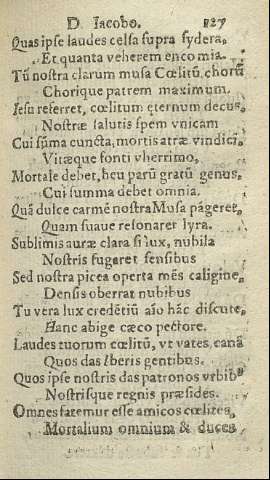 D. Iacobo. 127
Quas ipse laudes celsa supra sydera,
Et quanta veherem encomia.
Tū nostra clarum musa Cœlitū, chorū
Chorique patrem maximum.
Iesu referret, cœlitum ęternum decus,
Nostræ salutis spem vnicam
Cui sūma cuncta, mortis atræ vindici,
Vitæque fonti vherrimo,
Mortale debet, heu parū gratū genus,
Cui summa debet omnia.
Quā dulce carmē nostra Musa pāgeret,
Quam suaue resonarer lyra.
Sublimis auræ clara si lux, nubila
Nostris fugaret sensibus
Sed nostra picea operta mēs caligine,
Densis oberrat nubibus
Tu vera lux credētiū aīo hāc discute,
Hanc abige cæco pectore.
Laudes tuorum cœlitū, vt vates canā
Quos das Iberis gentibus.
Quos ipse nostris das patronos vrbibꝰ
Nostrisque regnis præsides.
Omnes fatemur esse amicos cœlites,
Mortalium omnium & duces